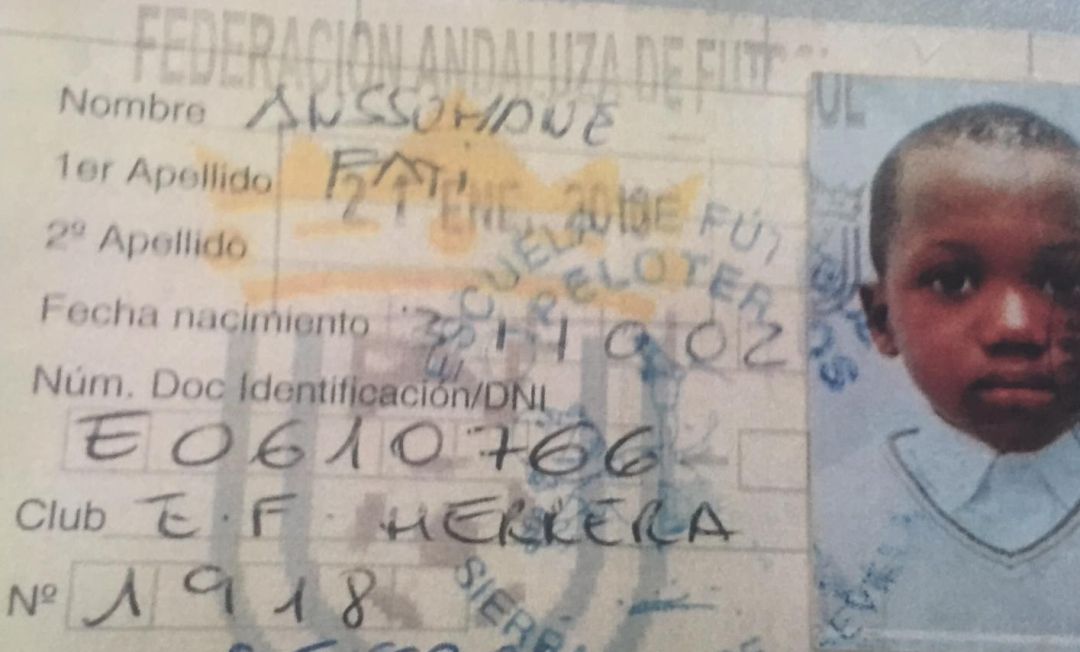 FEDERACIÓN ANDALUZA DE FUTBOL
Nombre ANSSUMANE
1er Apellido FATI
21 ENE. 2013
2º Apellido
ESCUELA DE FÚT
PELOTEROS
Fecha nacimiento 311002
Núm. Doc Identificación/DNI
E0610766
Club E.F. HERRERA
Nº 1918
SIERR